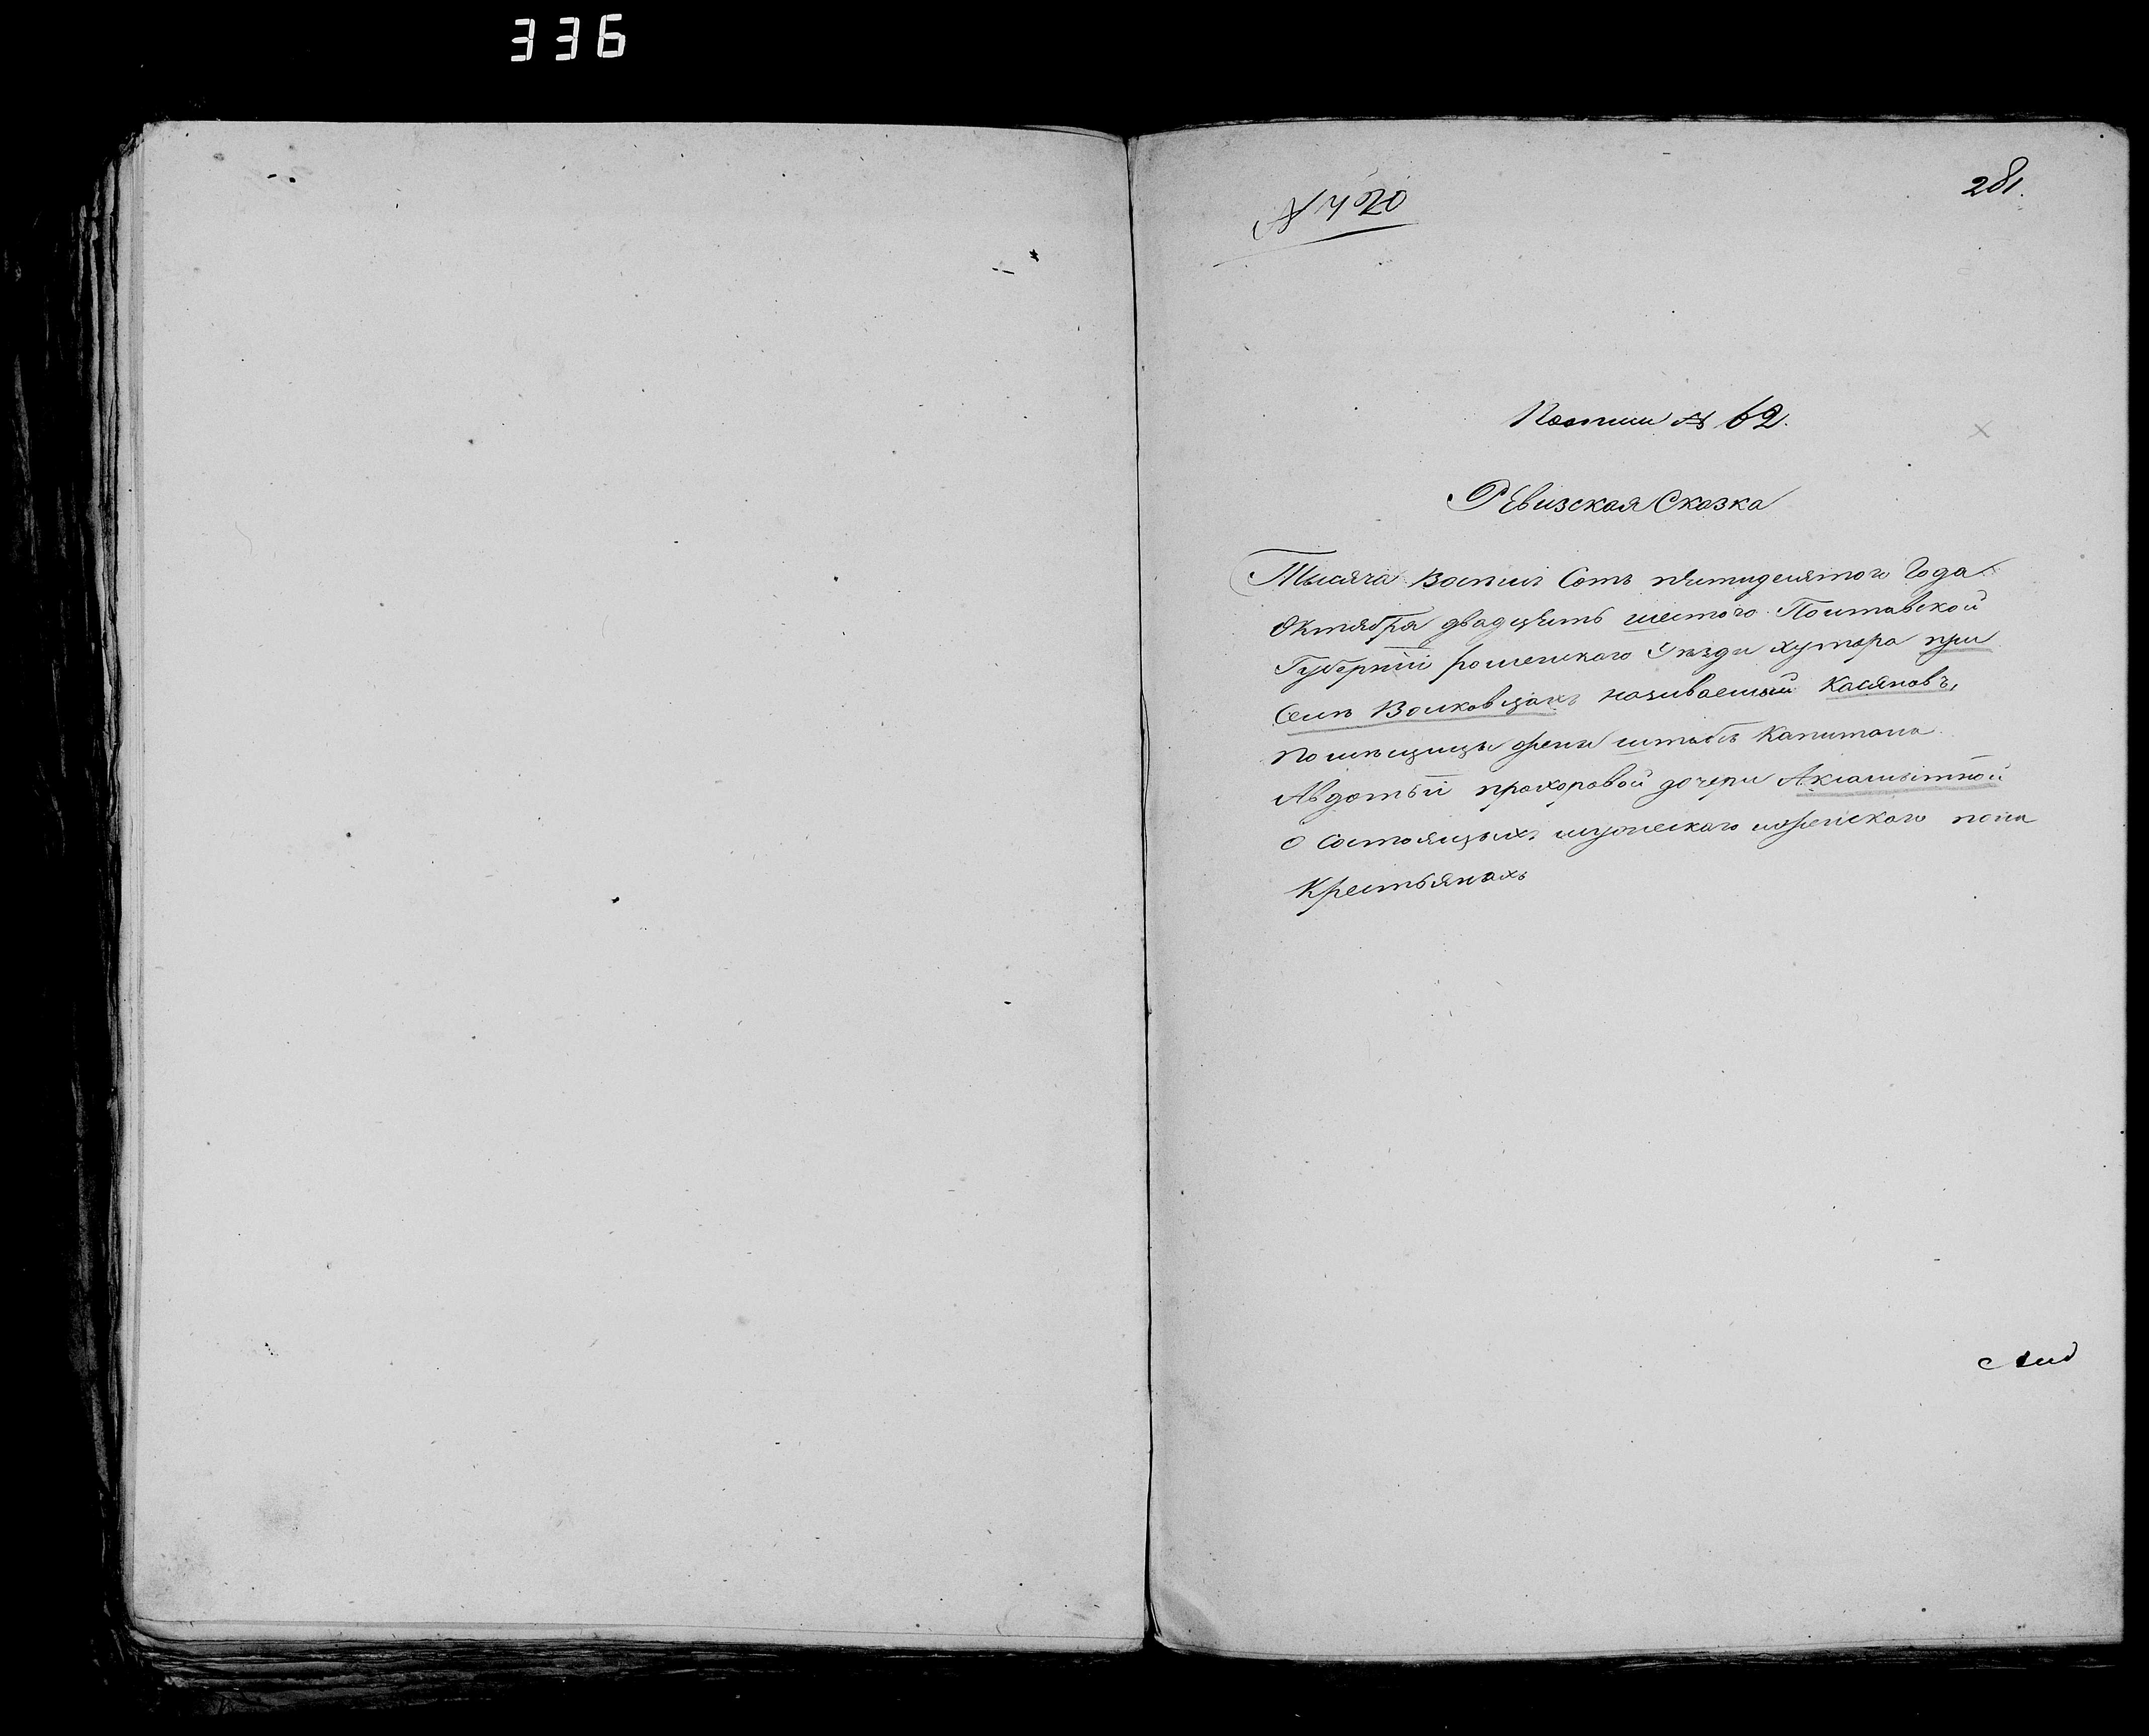 336
281.
№ 420
Почтии № 62.
Ревизская Сказка
Тысяча Восемь Сотъ пятидесятого Года
Октября двадцять шестого Полтавской
Губерніи роменского Уезда хутора при
Селе Волковцахъ називаемый Касяновъ,
помещицы жены штабсъ Капитана
Авдотьи прохоровой дочери Аксамытной
о Состоящыхъ мужескаго и женского пола
Крестьянахъ